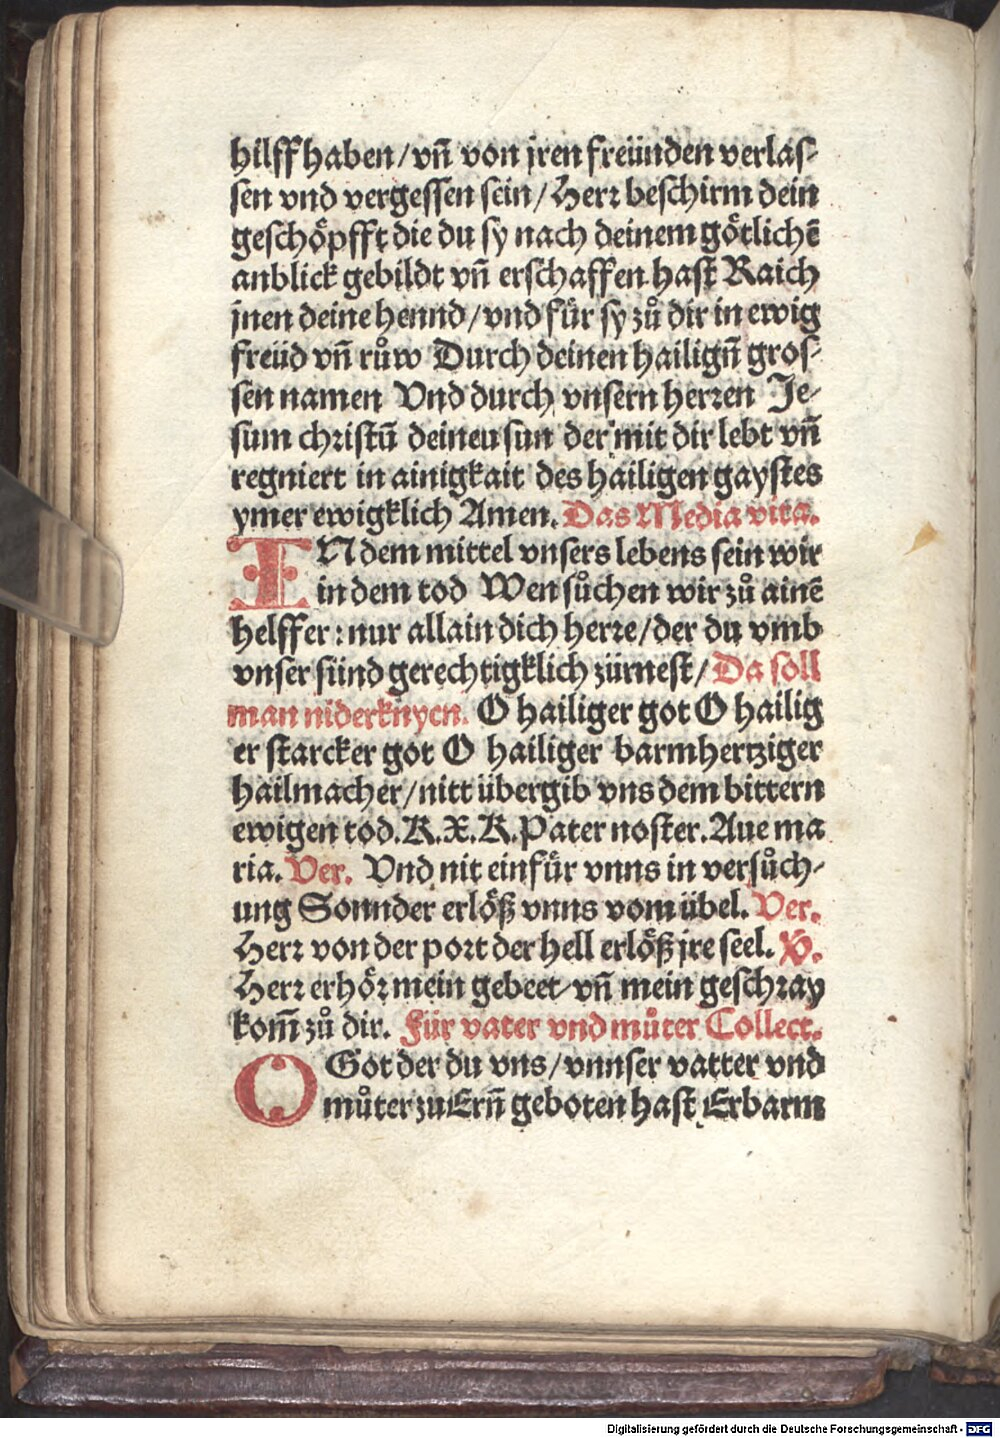 hilff haben/vnñ von jren freünden verlas⸗
sen vnd vergessen sein/Herr beschirm dein
geschöpfft die du sy nach deinem götlichē
anblick gebildt vñ erschaffen hast Raich
jnen deine hennd/vnd für sy zů dir in ewig
freüd vñ růw Durch deinen hailign̄ gros⸗
sen namen Vnd durch vnsern herren Je⸗
sum christū deineu sun der mit dir lebt vñ
regniert in ainigkait des hailigen gaystes
ymer ewigklich Amen. Das Media vita.
IN dem mittel vnsers lebens sein wir
in dem tod Wen sůchen wir zů ainē
helffer: nur allain dich herre/der du vmb
vnser sünd gerechtigklich zürnest/Da soll
man niderknyen. O hailiger got O hailig
er starcker got O hailiger barmhertziger
hailmacher/nitt übergib vns dem bittern
ewigen tod. K. X. K. Pater noster. Aue ma
ria. Ver. Vnd nit einfür vnns in versůch⸗
ung Sonnder erlöß vnns vom übel. Ver.
Herr von der port der hell erlöß jre seel. V.
Herr erhör mein gebeet vñ mein geschray
kom̄ zů dir. Für vater vnd můter Collect.
O Got der du vns/vnnser vatter vnd
můter zu Ern̄ geboten hast Erbarm
Digitalisierung gefördert durch die Deutsche Forschungsgemeinschaft - DFG